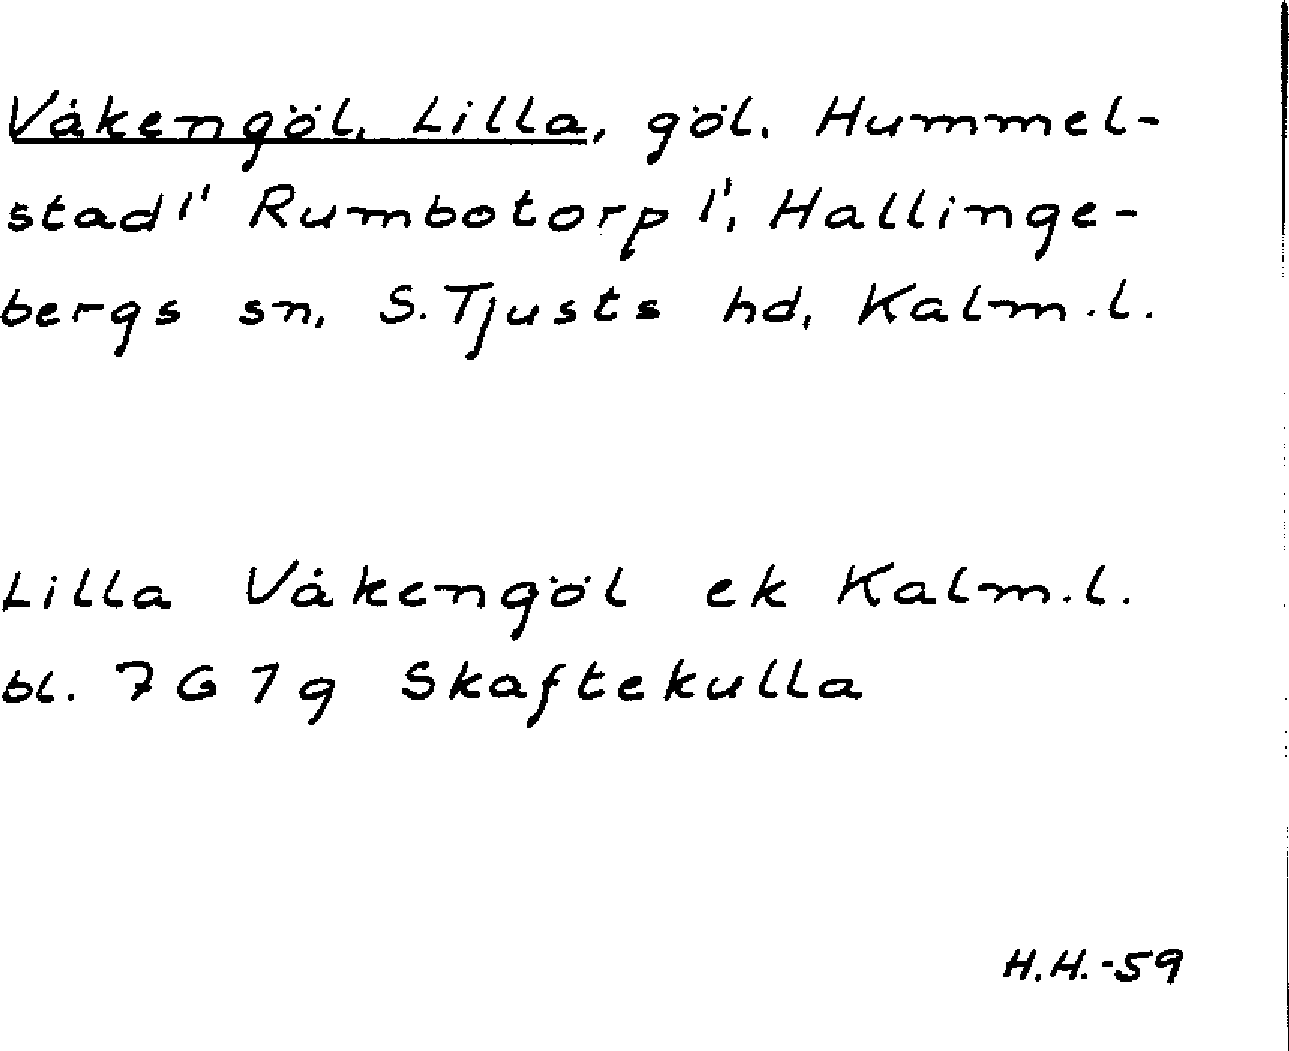 Våkengöl, Lilla, göl. Hummel-
stad 1¹ Rumbotorp 1¹, Hallinge-
bergs sn, S. Tjusts hd, Kalm.l.
Lilla Våkengöl ek Kalm.l.
bl. 7 G 1 g Skaftekulla
H.H.-59